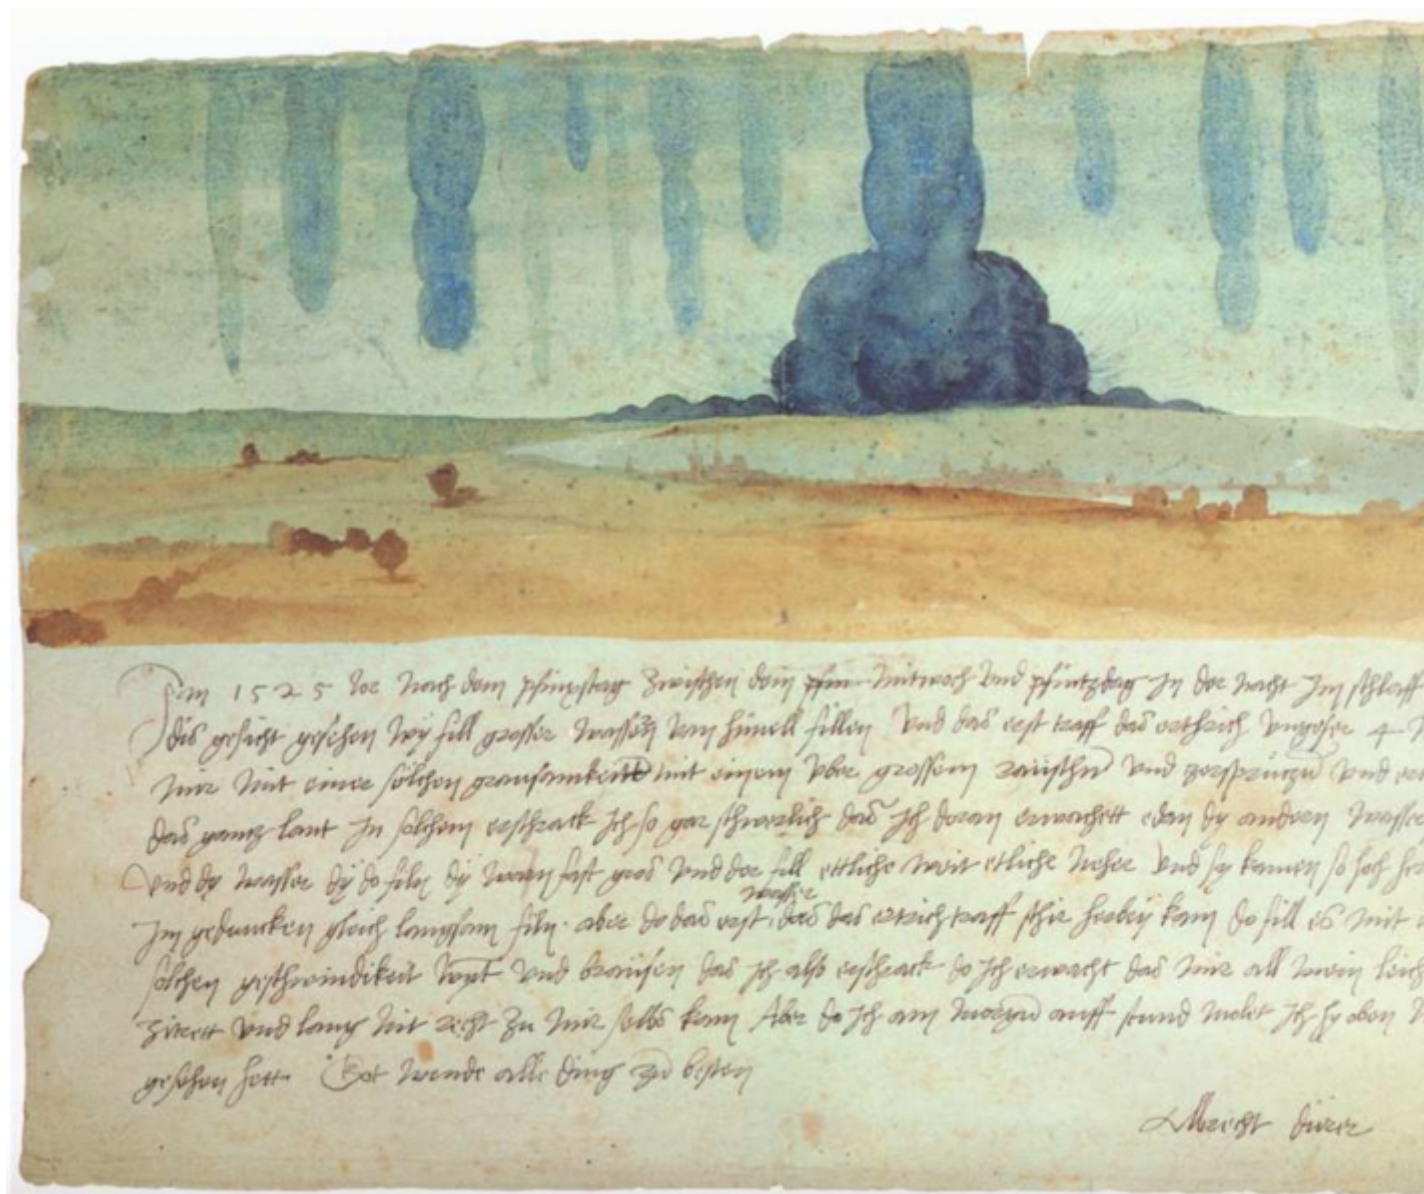 Im 1525 Jor nach dem pfinxstag zwischen dem pfin mitwoch und pfintzdag in der nacht im schlaff
dis gesicht gesehen wy fill grosser wassern vom himell fillen und das erst traff das erthrich ungefer 4
mir mit einer solchen grausamkeitt mit einem uber grossem raüschn und zersprützn und
das gantz lant In solchem erschrack ich so gar schwerlich das ich doran erwachett edan dy andern wasser
und dy wasser dy do filn dy warn fast gros und der fill ettliche weit etliche neher und sy kamen so hoch
im gedancken gleich langsam filn. aber do das erst wasser das das ertrich traff schir herbey kam do fill es mit
solchen geschwindikeit wynt und braüsen das ich also erschrack do ich erwacht das mir all mein
zitrett und lang nit recht zu mir selbs kam Aber do ich am morgn auff stund molet ich hy oben
gesehen hett. Got wende alle ding zu besten
Albrecht dürer